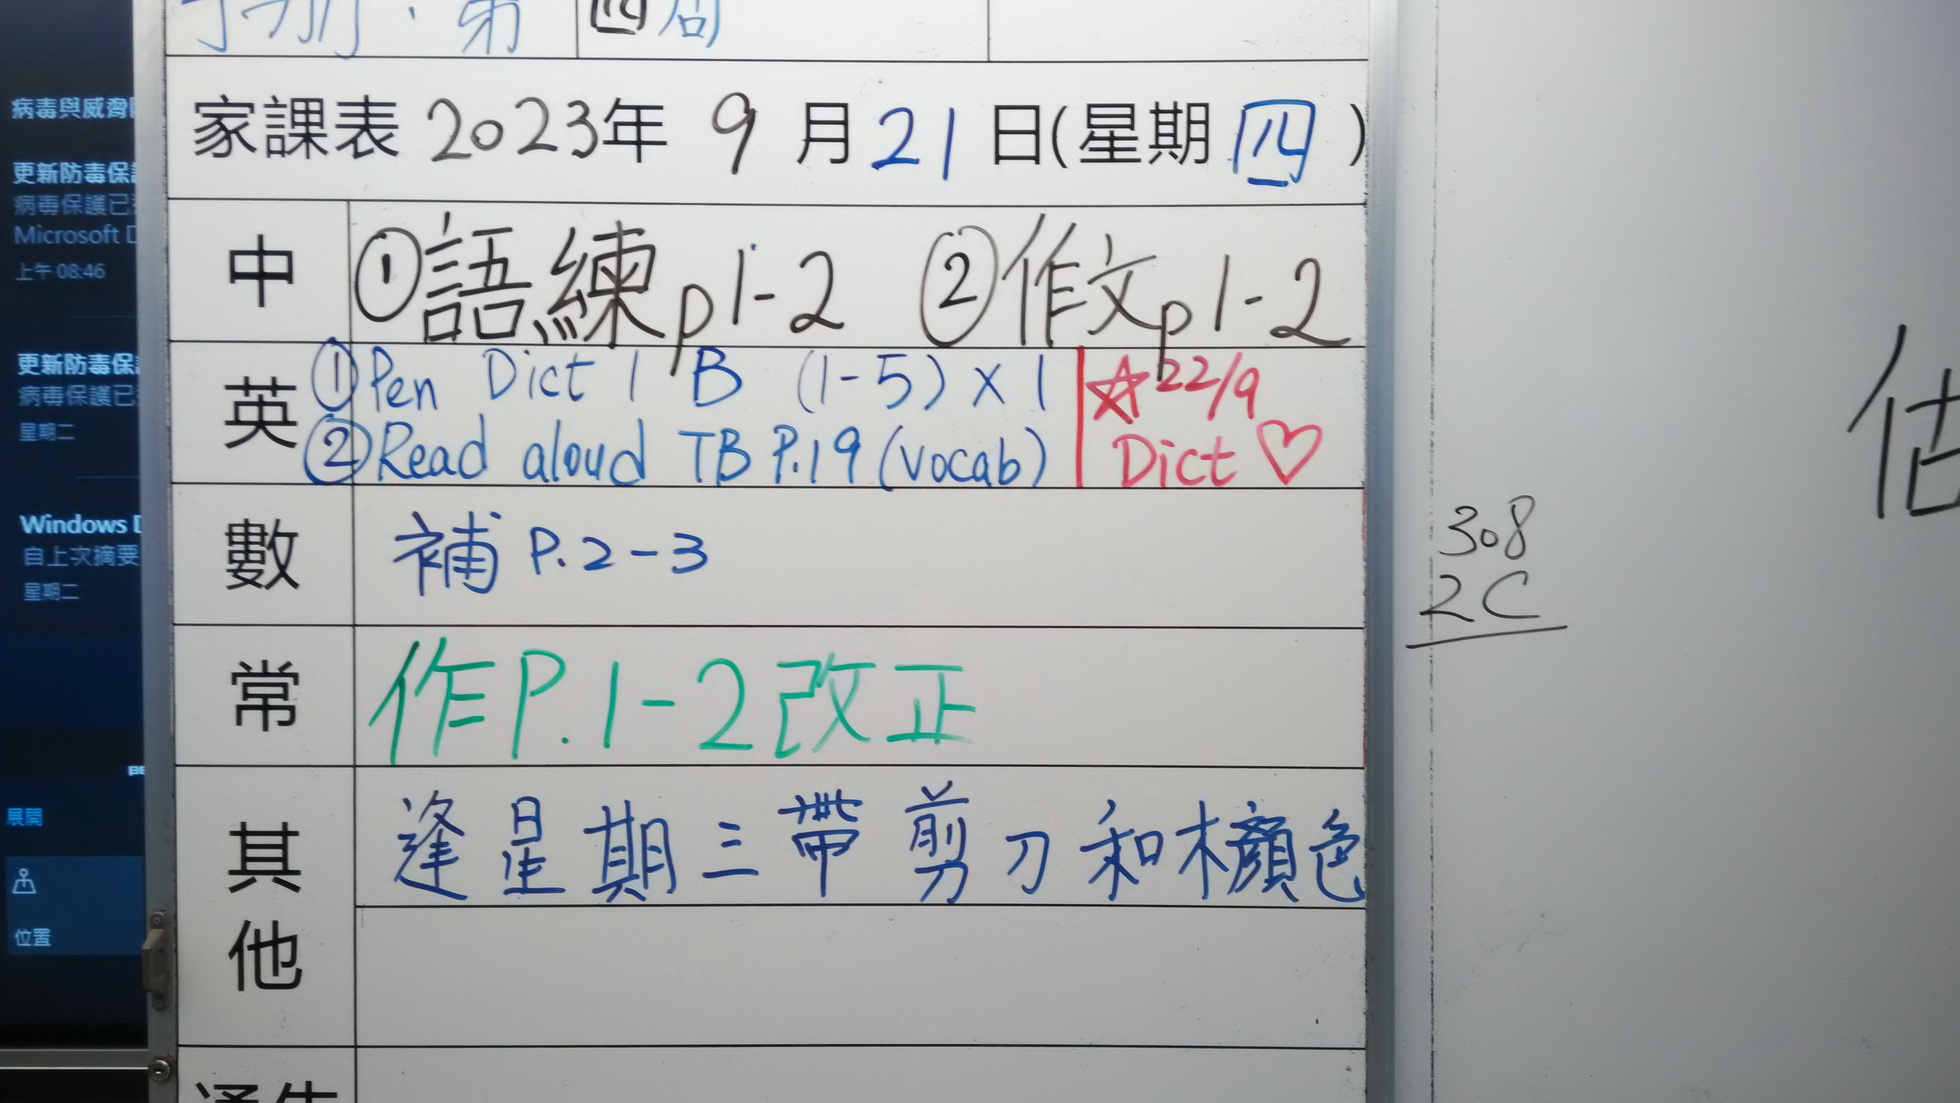 手册：第四周
家課表 2023年 9 月 21 日(星期 四 )
中 ①語練p1-2 ②作文p1-2
英 ①Pen Dict 1 B (1-5) x 1
②Read aloud TB P.19 (vocab)
☆22/9
Dict ♡
數 補 P.2-3
常 作P.1-2改正
其他 逢星期三帶剪刀和木顏色
通告
308
2C
估
病毒與威脅
更新防毒保
病毒保護已
Microsoft D
上午 08:46
更新防毒保
病毒保護已
星期二
Windows D
自上次摘要
星期二
展開
位置